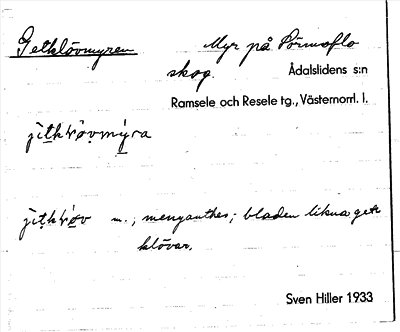 Getklövmyren Myr på Pärmoflo
skog. Ådalslidens s:n
Ramsele och Resele tg., Västernorrl. l.
m.; menyanthes; bladen likna get-
klövar.
Sven Hiller 1933